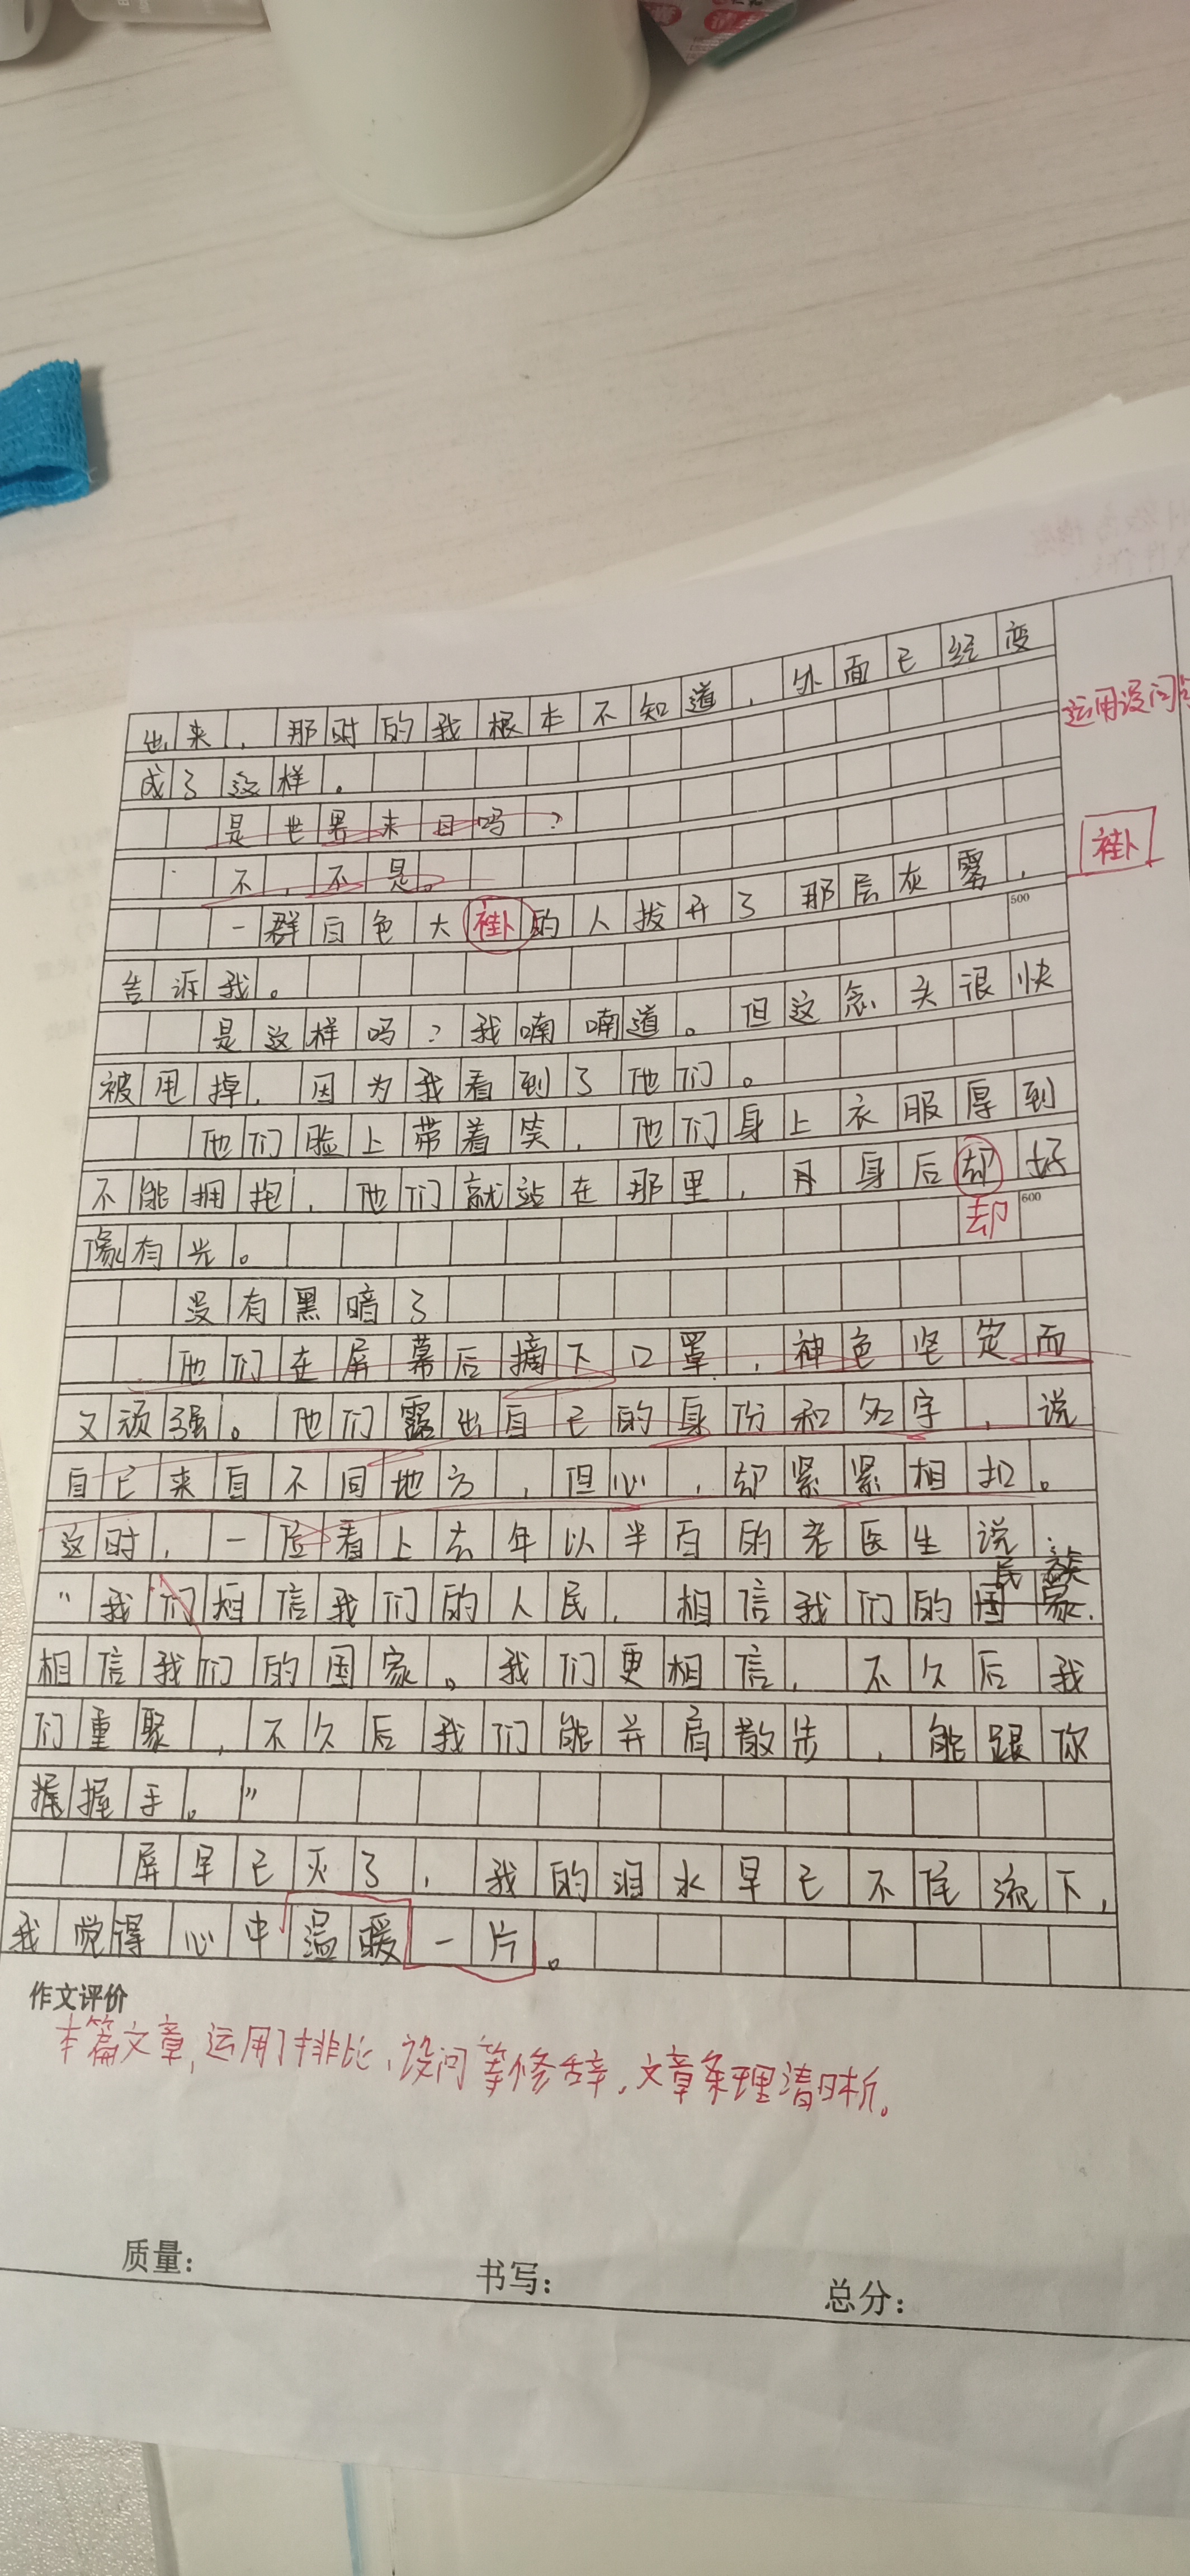 出来，那时的我根本不知道，外面已经变
成了这样。
是世界末日吗？
不，不是。
一群白色大褂的人拔开了那层灰雾，
500
告诉我。
是这样吗？我喃喃道。但这念头很快
被甩掉，因为我看到了他们。
他们脸上带着笑，他们身上衣服厚到
不能拥抱，他们就站在那里，身后却好
却
600
像有光。
没有黑暗了
他们在屏幕后摘下口罩，神色坚定而
又顽强。他们露出自己的身份和名字，说
自己来自不同地方，但心，却紧紧相扣。
这时，一脸看上去年以半百的老医生说：
民族
“我们相信我们的人民，相信我们的国家，
相信我们的国家。我们更相信，不久后我
们重聚，不久后我们能并肩散步，能跟你
握握手。”
屏早已灭了，我的泪水早已不住流下，
我觉得心中温暖一片。
运用设问
褂
作文评价
本篇文章，运用了排比、设问等修辞，文章条理清晰。
质量： 书写： 总分：